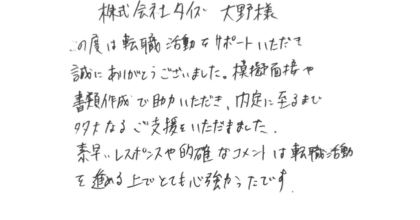 株式会社タイズ 大野様
この度は転職活動をサポートいただき
誠にありがとうございました。模擬面接や
書類作成で助力いただき、内定に至るまで
多大なるご支援をいただきました。
素早いレスポンスや的確なコメントは転職活動
を進める上でとても心強かったです